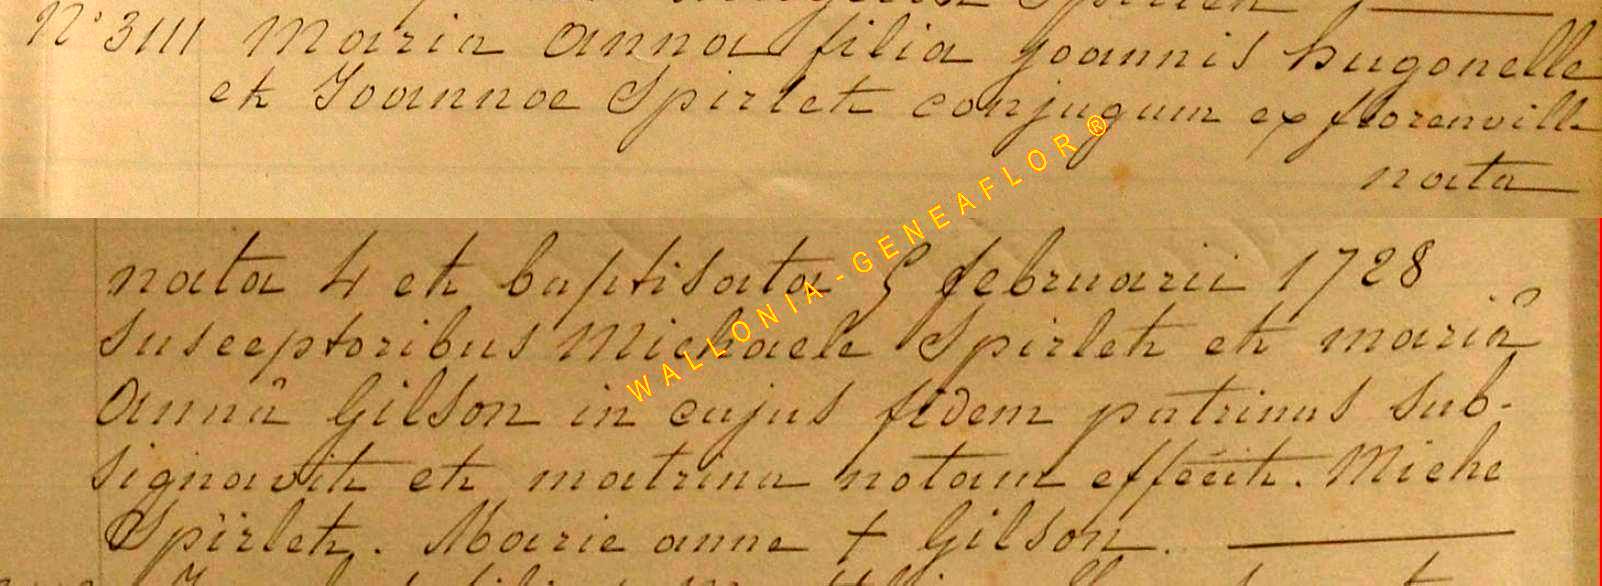 N° 3111 Maria Anna filia Joannis hugonelle
et Joannae Spirlet conjugum ex florenville
nata
nata 4 et baptisata 5 februarii 1728
susceptoribus Michaele Spirlet et mariâ
Annâ Gilson in cujus fidem patrinus sub-
signavit et matrina notam effecit. Miche
Spirlet. Marie anne + Gilson.
WALLONIA-GENEAFLOR®